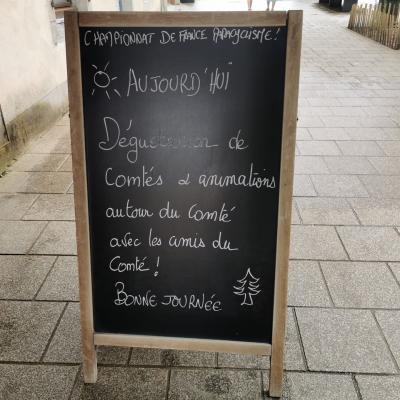 CHAMPIONNAT DE FRANCE PARACYCLISME!
AUJOURD'HUÏ
Dégustation de
Comtés & animations
autour du Comté
avec les amis du
Comté !
BONNE JOURNÉE